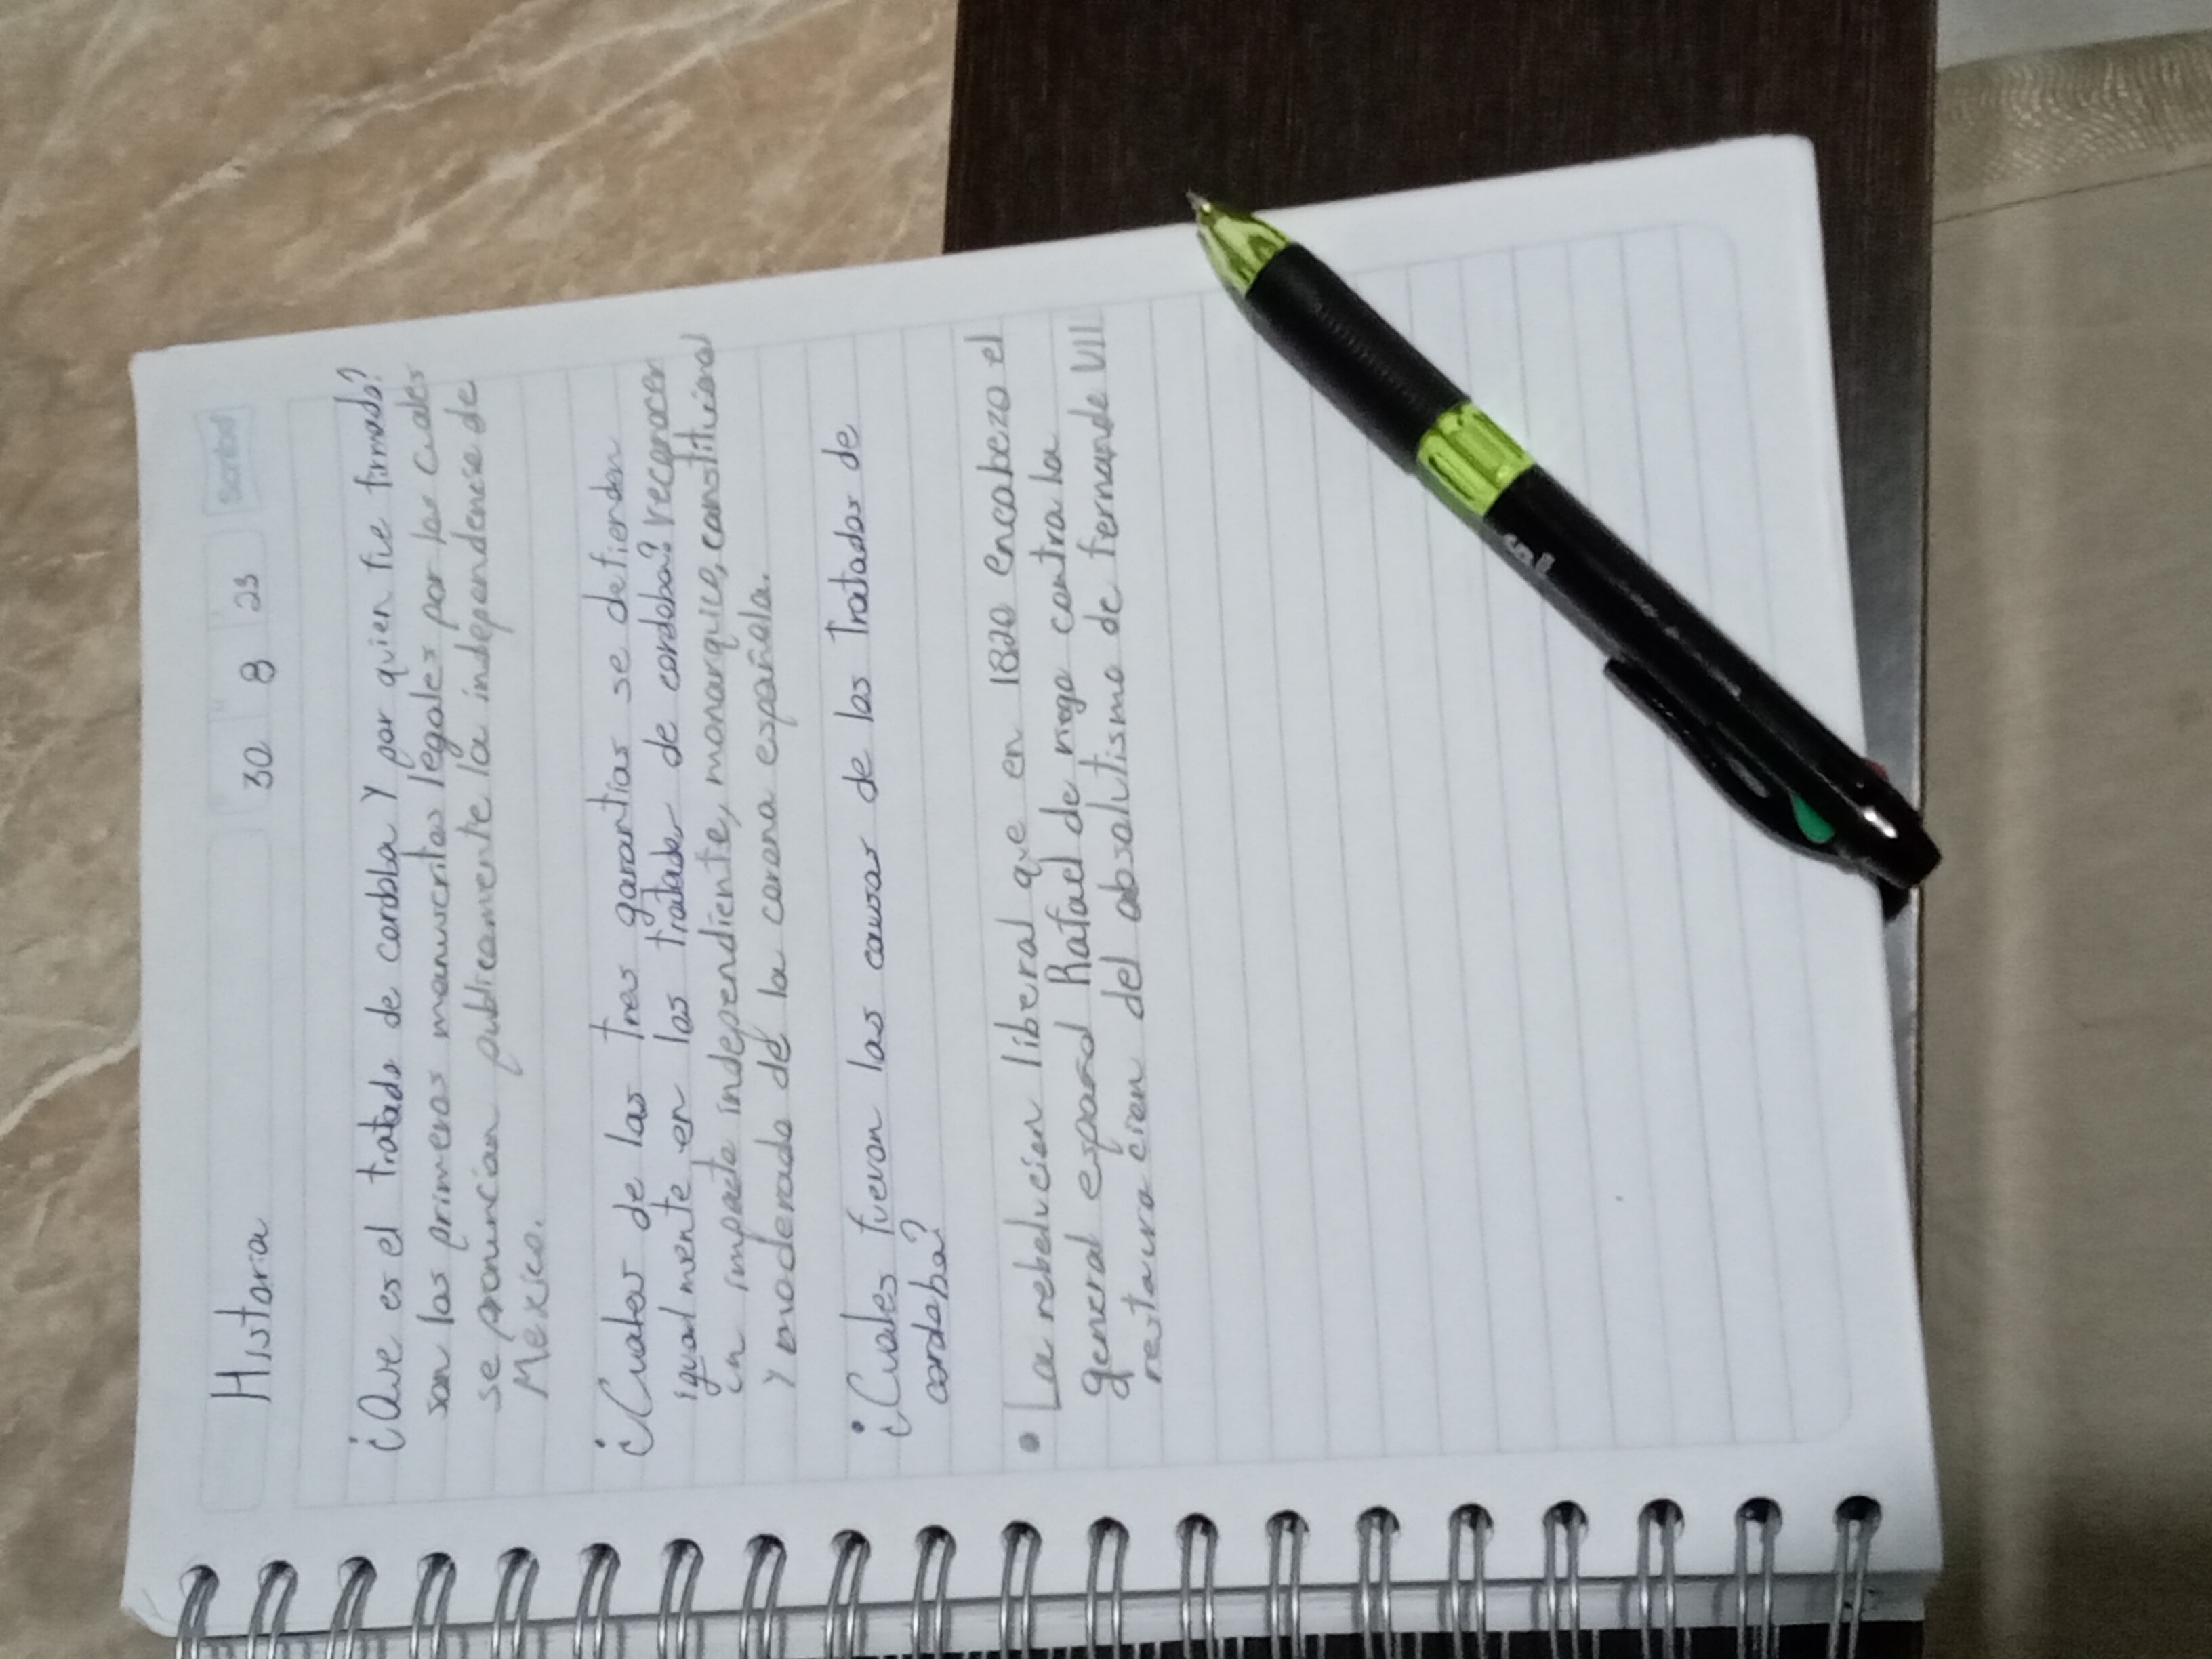 Historia
30 8 23
Scribe
¿Que es el tratado de cordoba Y por quien fue firmado?
son los primeros manuscritos legales por los cuales
se pronuncian publicamente la independencia de
Mexico.
¿Cuales de las Tres garantias se defienden
igualmente en los tratados de cordoba? reconocer
un impacto independiente, monarquico, constitucional
Y moderado de la corona española.
¿Cuales fueron las causas de los Tratados de
cordoba?
• La rebelucion liberal que en 1820 encabezo el
general español Rafael de riego contra la
restauracion del absolutismo de fernando VII